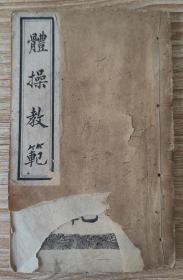 體操教範